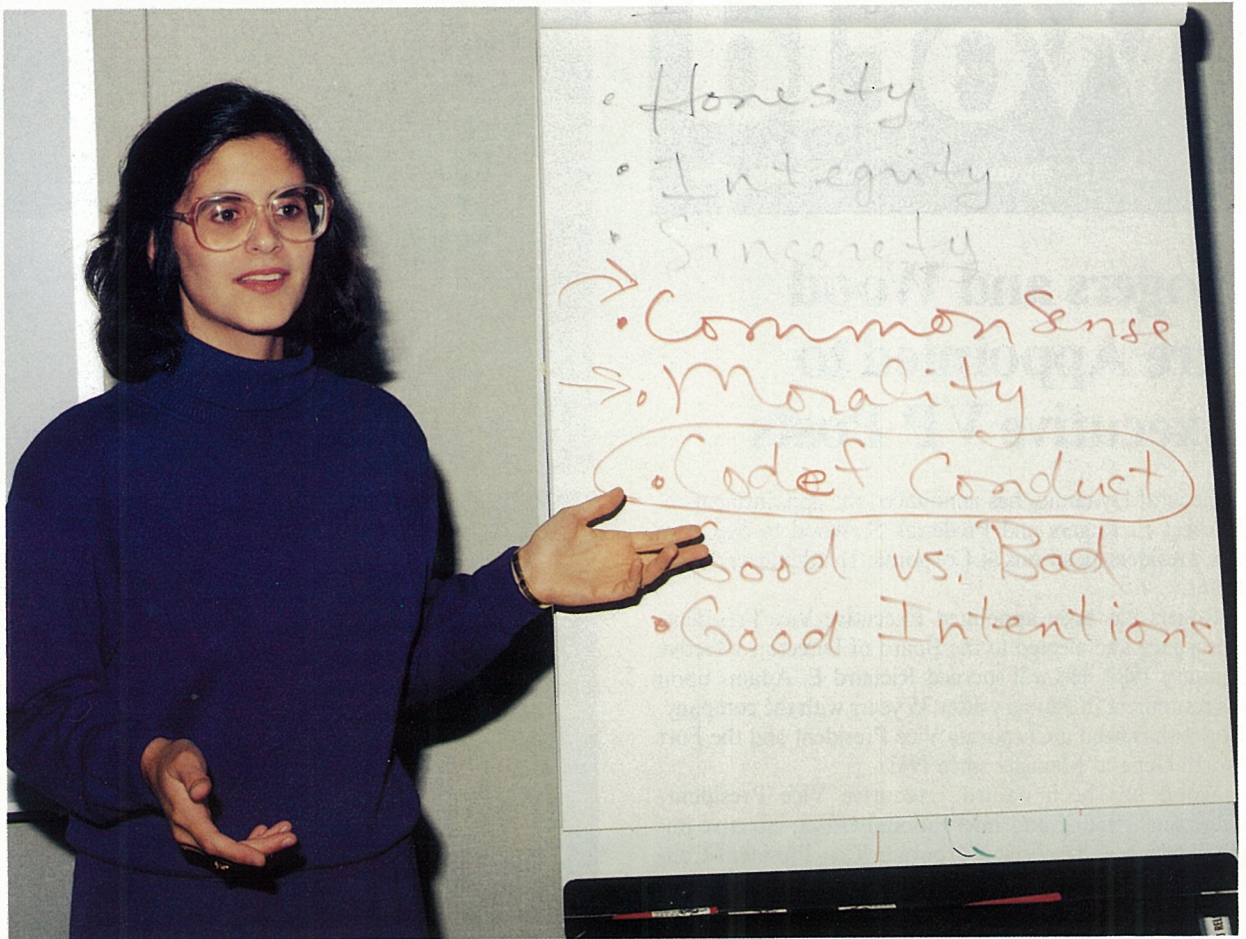 • Honesty
• Integrity
• Sincerety
• Common Sense
• Morality
• Codef Conduct
Good vs. Bad
• Good Intentions